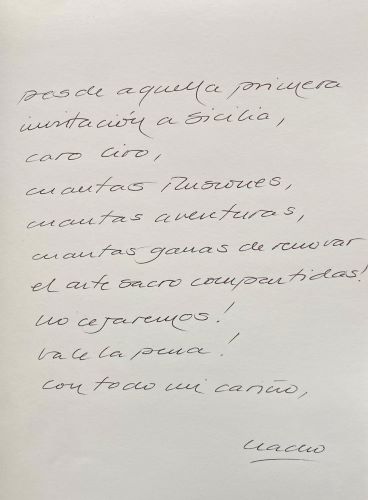 Desde aquella primera
invitación a Sicilia,
caro Ciro,
cuantas ilusiones,
cuantas aventuras,
cuantas ganas de renovar
el arte sacro compartidas!
No cejaremos!
Vale la pena!
Con todo mi cariño,
Nacho